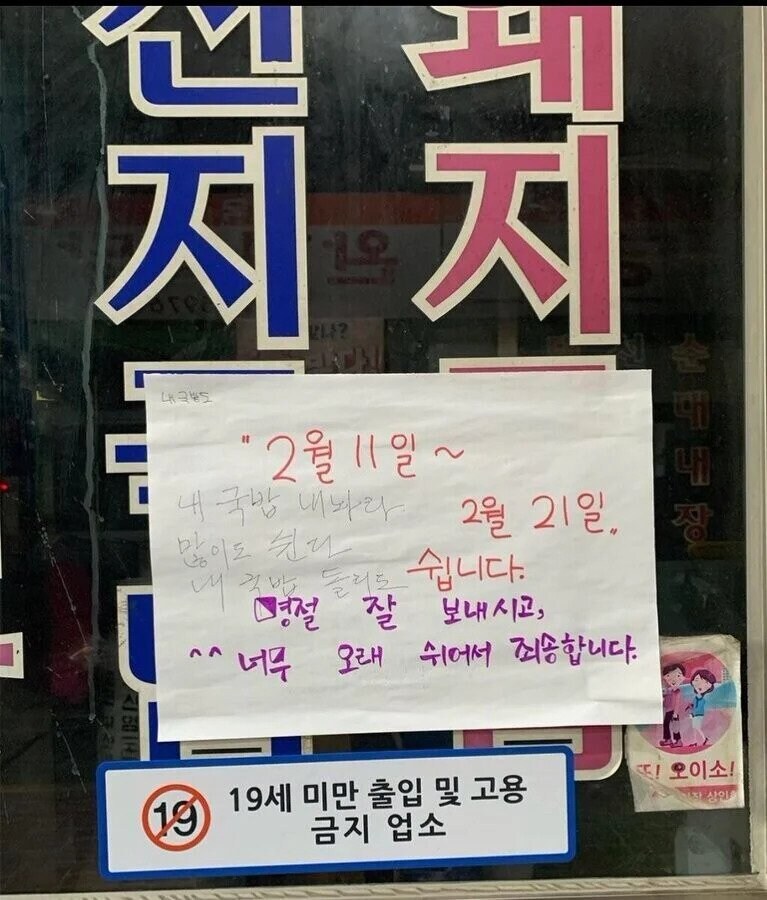 전지국
돼지국
내 국밥도
"2월 11일 ~
2월 21일"
쉽니다.
내 국밥 내놔라
많이도 쉰다
내 국밥 돌리도
명절 잘 보내시고,
^^ 너무 오래 쉬어서 죄송합니다.
순대내장
또! 오이소!
상인회
19 19세 미만 출입 및 고용
금지 업소